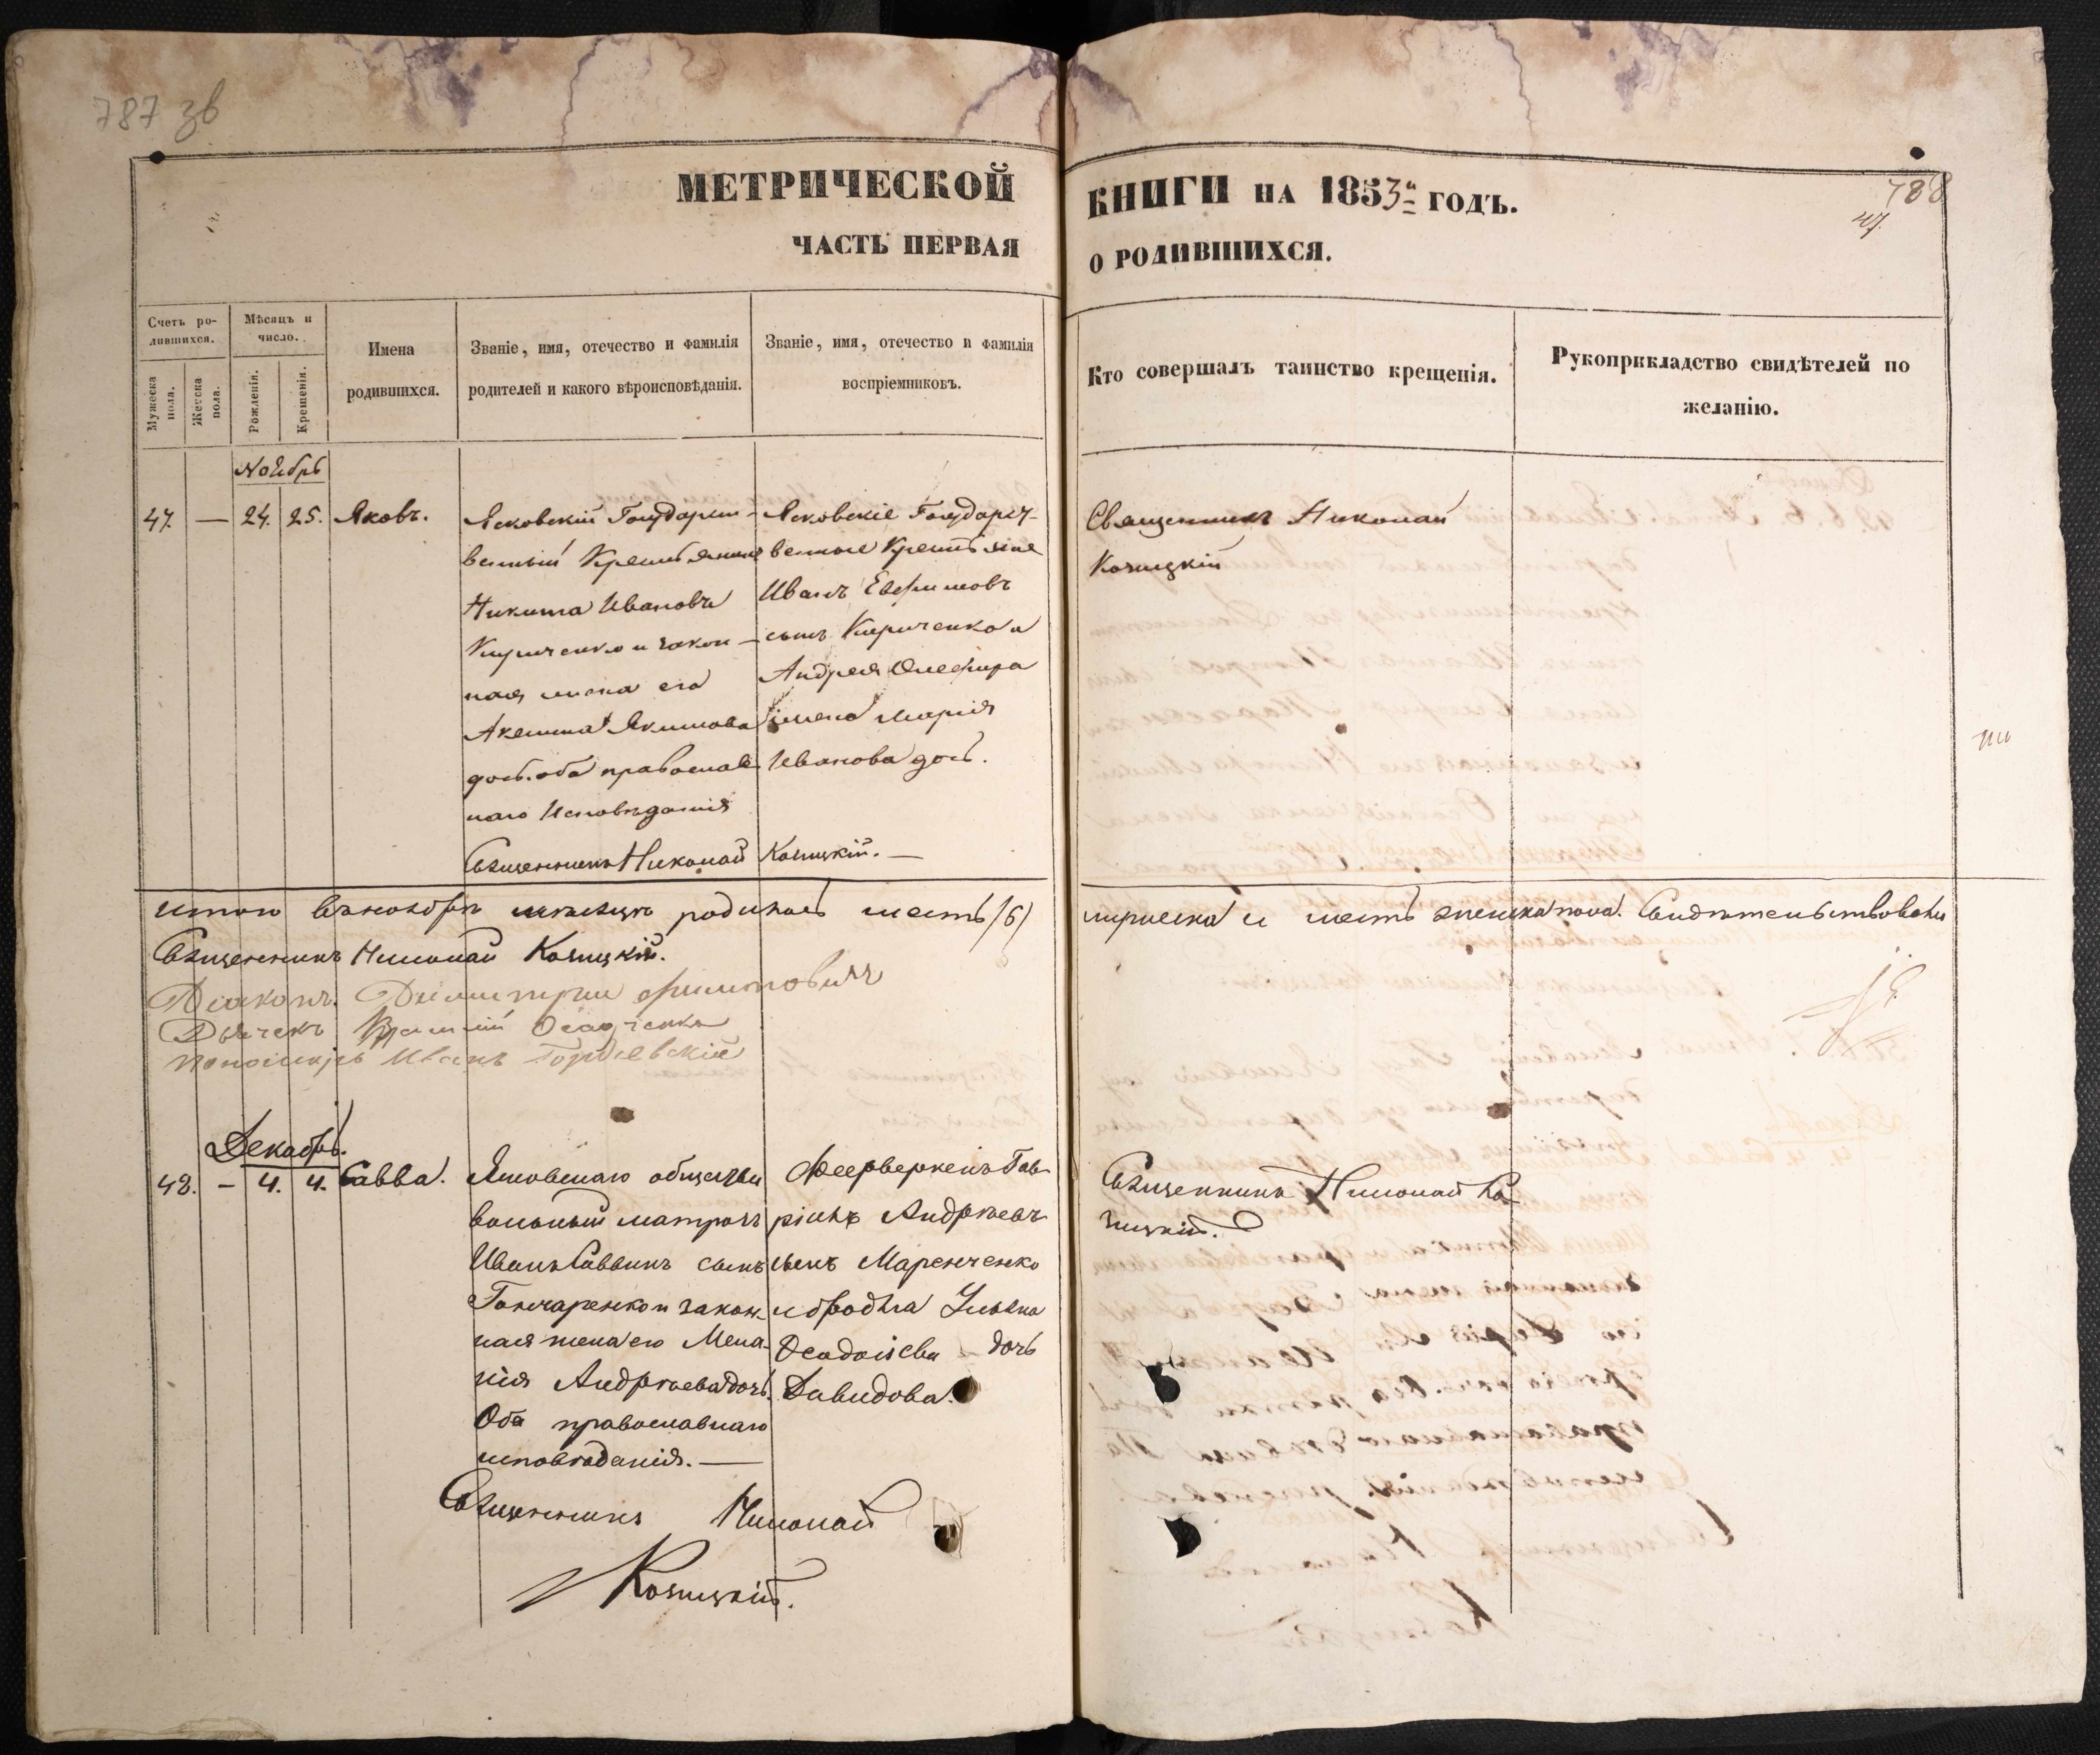 787 зв
788
47.
МЕТРИЧЕСКОЙ КНИГИ НА 1853й ГОДЪ.
ЧАСТЬ ПЕРВАЯ О РОДИВШИХСЯ.
Счетъ ро-
дившихся.
Мужеска
пола.
Женска
пола.
Мѣсяцъ и
число.
Рожденія.
Крещенія.
Имена
родившихся.
Званіе, имя, отечество и фамилія
родителей и какого вѣроисповѣданія.
Званіе, имя, отечество и фамилія
воспріемниковъ.
Кто совершалъ таинство крещенія.
Рукоприкладство свидѣтелей по
желанію.
Ноябрь
47. — 24. 25. Яковъ.
Ясковскій Государст-
венный Крестьянинъ
Никита Ивановъ
Кириченко и закон-
ная жена его
Акелина Якимова
дочь. оба православ
наго Исповѣданія
Ясковскіе Государст-
венные Крестьяне
Иванъ Евфимовъ
сынъ Кириченко и
Андрея Олефира
жена Марія
Иванова дочь.
Священникъ Николай
Козицкій
Священникъ Николай Козицкій. —
Итого въ ноябрѣ мѣсяцѣ родилось шесть /6/ мужеска и шесть женска пола. Свидѣтельствовали
Священникъ Николай Козицкій.
Діаконъ Димитрій Филиповичъ
Дьячекъ
пономарь Иванъ Гордіевскій
Декабрь.
48. – 4. 4. Савва.
общества
вольный матрозъ
Иванъ Саввинъ сынъ
Гончаренко и закон-
ная жена его Мела-
нія Андрѣева дочь.
Оба православнаго
исповѣданія. —
Феерверкеръ Гав-
ріилъ Андрѣевъ
сынъ Маренченко
Ульяна
дочь
Давидова.
Священникъ Николай Ко-
зицкій.
Священникъ Николай
Козицкій.